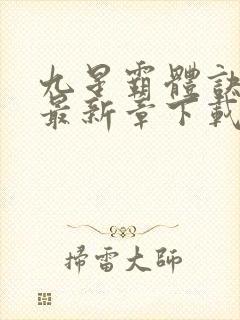 九星霸體訣
最新章下載
掃雷大師